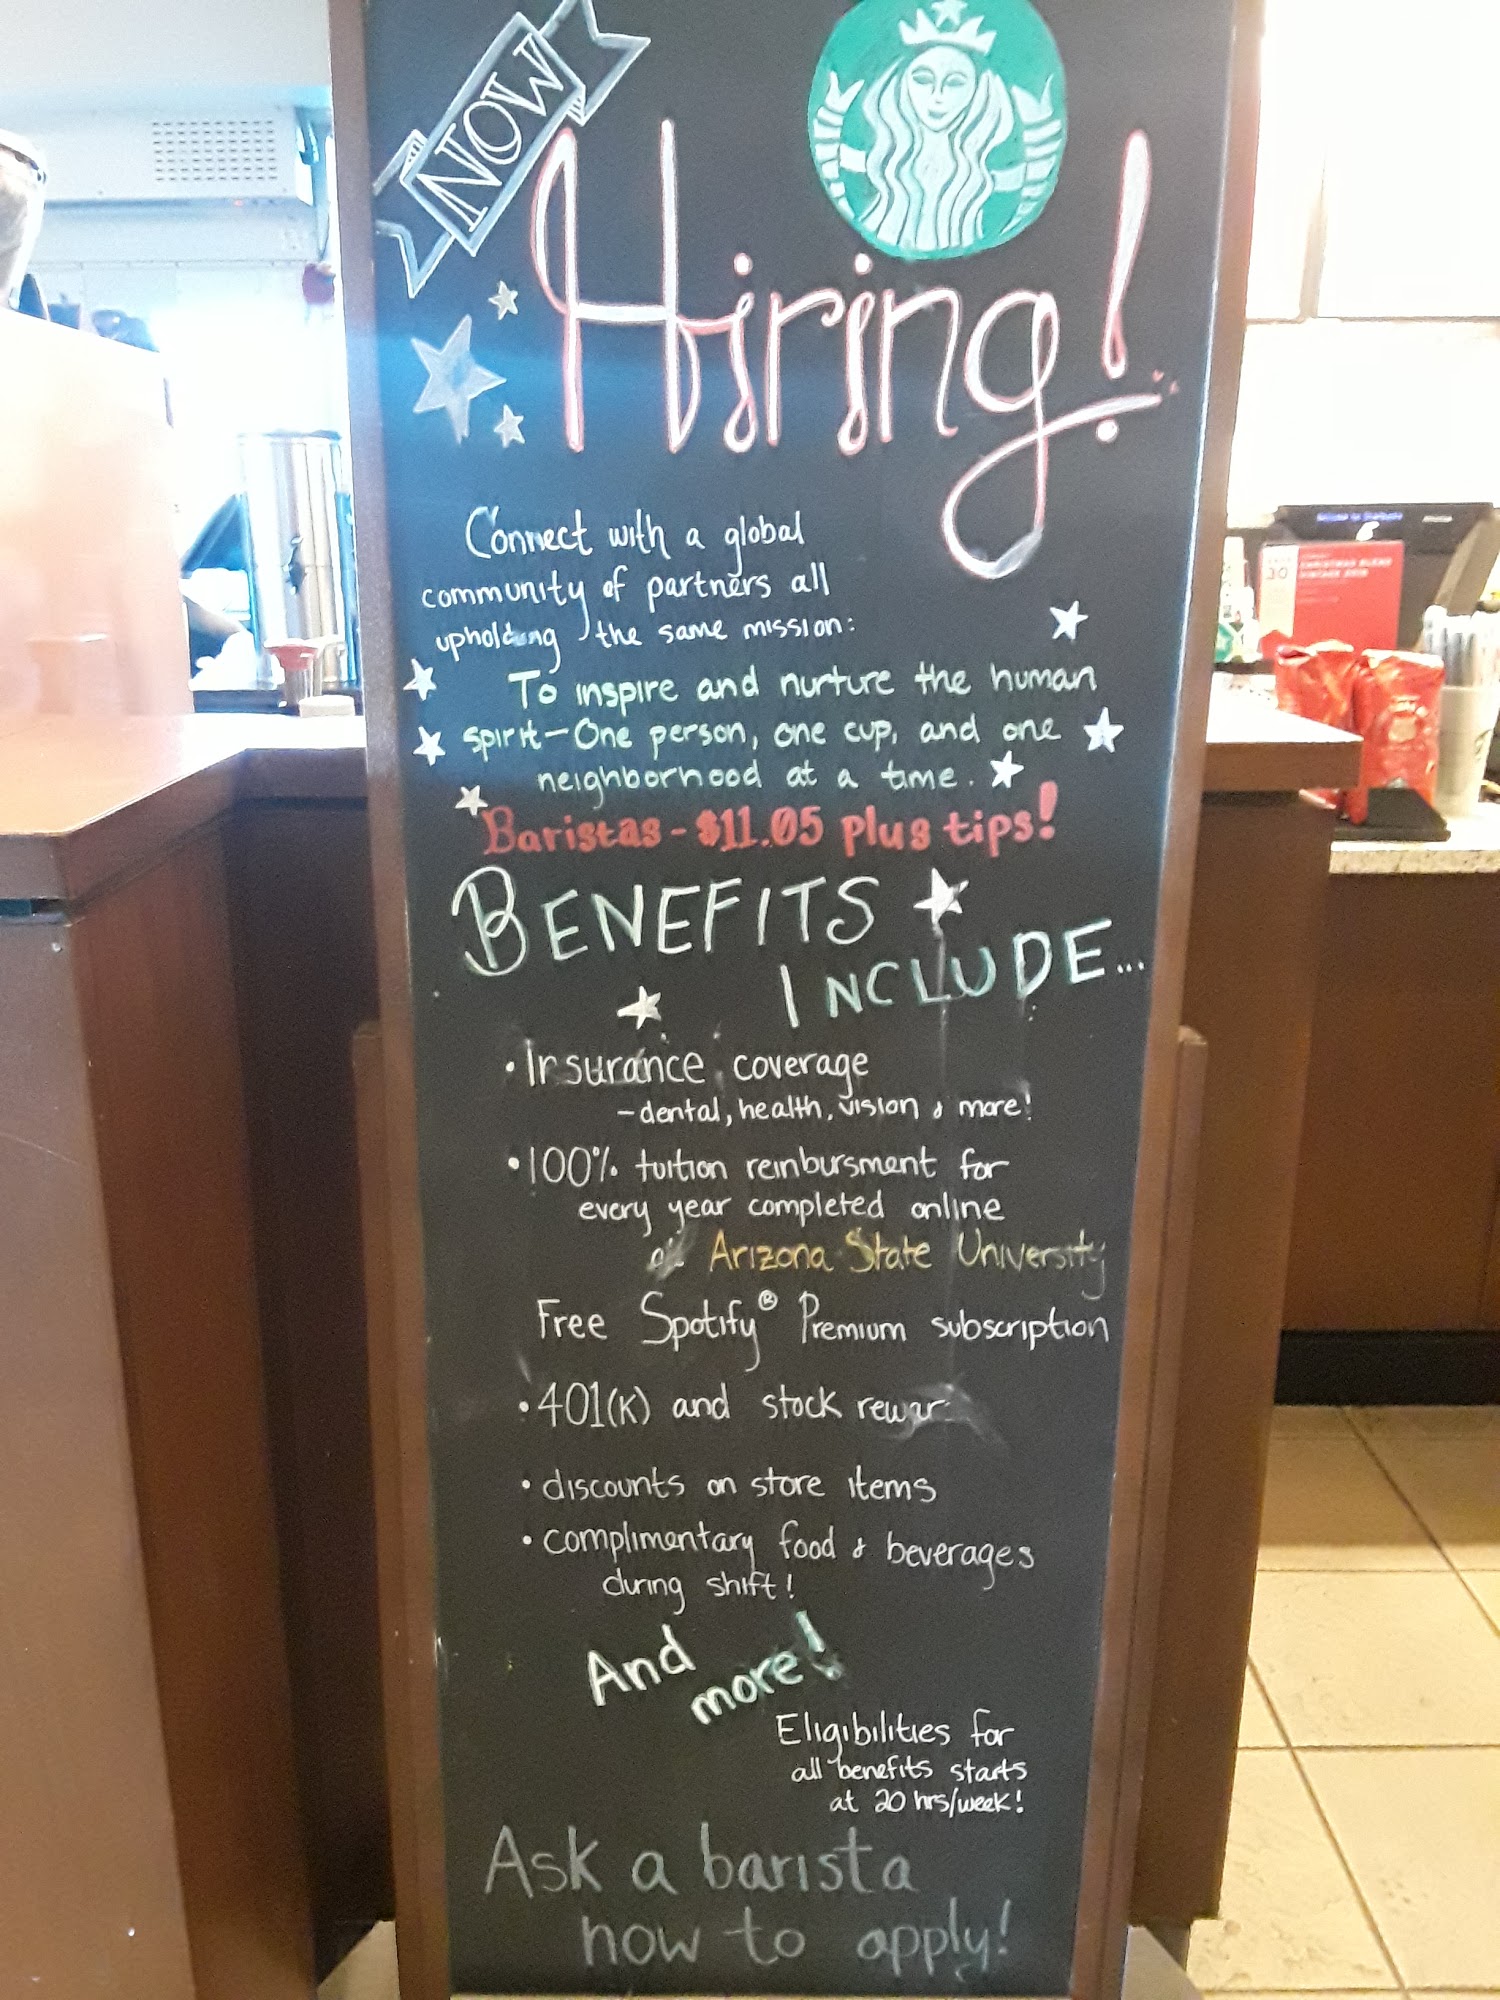 NOW
Hiring!
Connect with a global
community of partners all
upholding the same mission:
To inspire and nurture the human
spirit - One person, one cup, and one
neighborhood at a time.
Baristas - $11.05 plus tips!
BENEFITS
INCLUDE...
• Insurance coverage
- dental, health, vision & more!
• 100% tuition reinbursment for
every year completed online
Arizona State University
Free Spotify® Premium subscription
• 401(K) and stock rewar
• discounts on store items
• complimentary food & beverages
during shift!
And
more!
Eligibilities for
all benefits starts
at 20 hrs/week!
Ask a barista
how to apply!
30
CHRISTMAS BLEND